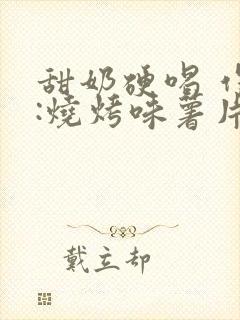 甜奶硬唱
:燒烤味薯片
戴立却